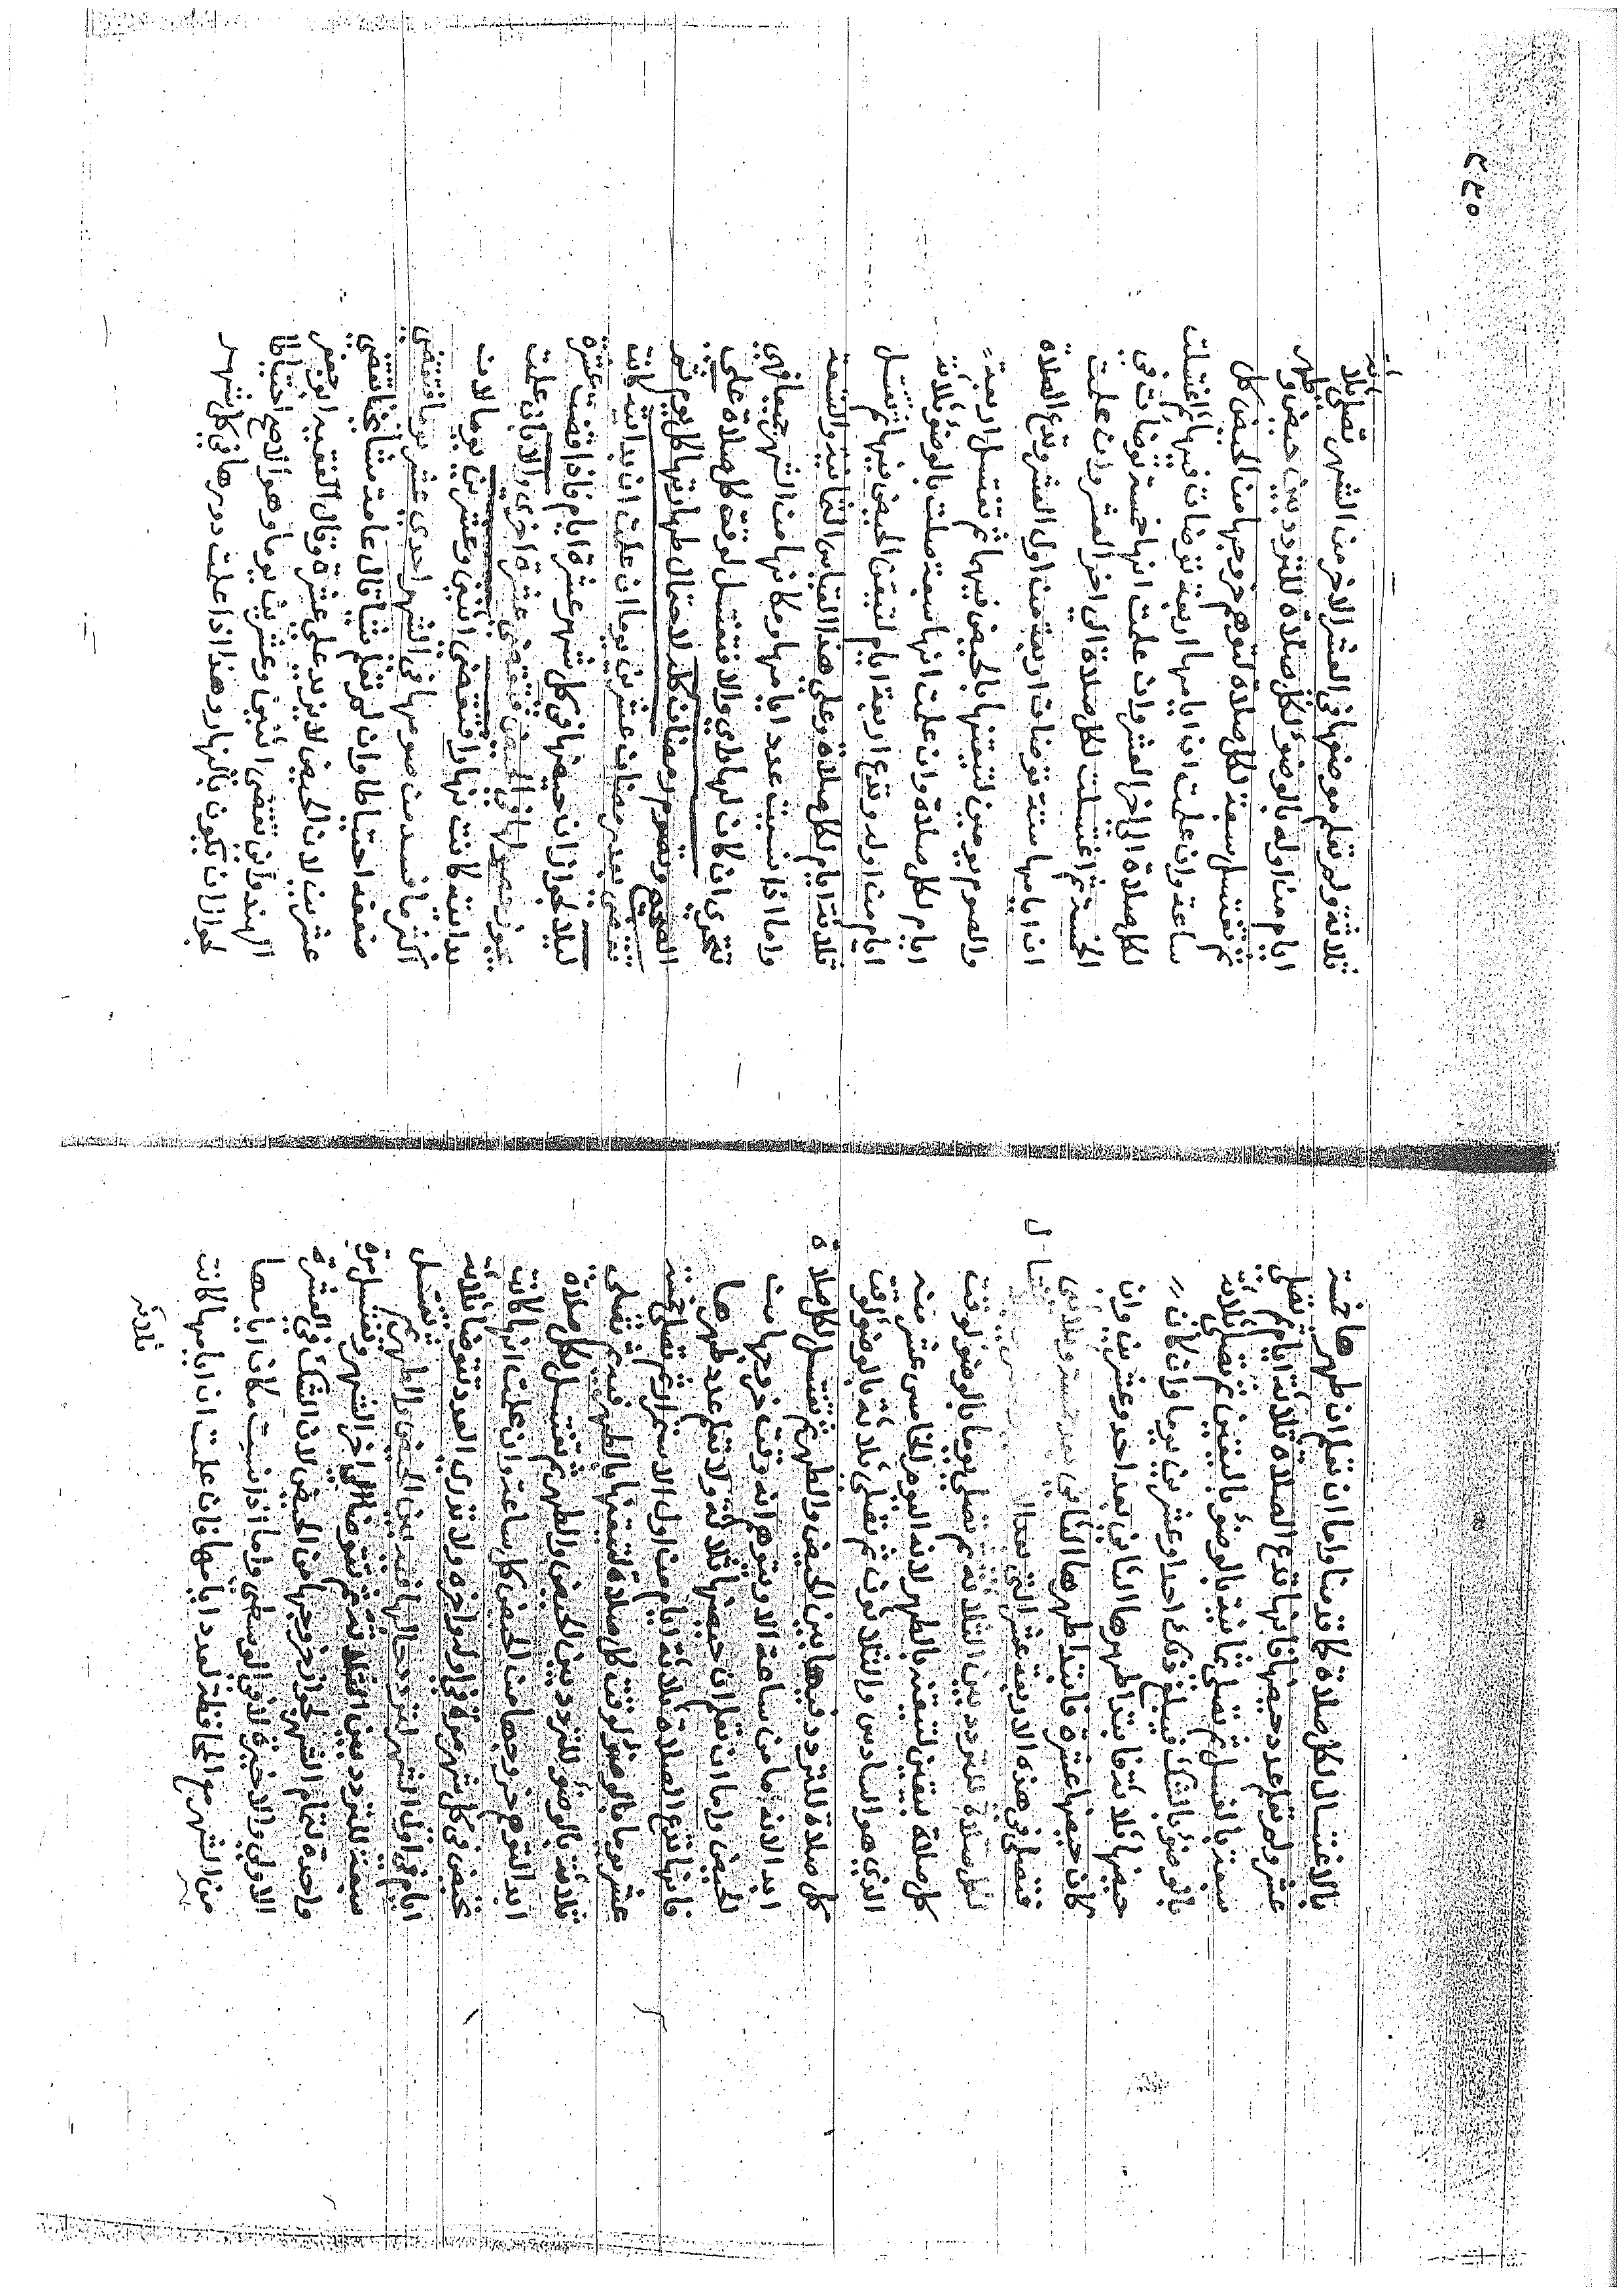 بالاغتسال لكل صلاة كما قدمنا واما ان تعلم ان طهرها خمسة
عشر ولم تعلم عدد حيضها فانها تدع الصلاة ثلاثة ايام ثم تصلى
سبعة بالغسل ثم تصلى ثمانية بالوضوء باليقين ثم تصلى ثلاثة
بالوضوء بالشك فيبلغ ذلك احدا وعشرين يوما وان كان
حيضها ثلاثة فابتدا طهرها الثانى بعد احد وعشرين وان
كان حيضها عشرة فابتدا طهرها الثانى بعد خمسة وثلاثين
فتصلى فى هذه الاربعة عشر التى بعد
لكل صلاة للتردد بين الثلاثة ثم تصلى يوما بالوضوء لوقت
كل صلاة بيقين لتيقنه بالطهر لانه اليوم الخامس عشر منه
الذى هو السادس والثلاثون ثم تصلى ثلاثة بالوضوء لوقت
كل صلاة للتردد فيها بين الحيض والطهر ثم تغتسل لكل صلاة
ابدا لانه ما من ساعة الا ويتوهم انه وقت خروجها من
الحيض واما ان تعلم ان حيضها ثلاثة ولا تعلم عدد طهرها
فانها تدع الصلاة ثلاثة ايام من اول الاستمرار ثم تصلى خمسة
عشر يوما بالوضوء لوقت كل صلاة لتيقنها بالطهر فيه ثم تصلى
ثلاثة بالوضوء للتردد بين الحيض والطهر ثم تغتسل لكل صلاة
ابدا لتوهم خروجها من الحيض كل ساعة وان علمت انها كانت
تحيض فى كل شهر مرة فى اوله او اخره ولا تدرى العدد توضأ ثلاثة
ايام فى اول الشهر لتردد حالها فيه بين الحيض والطهر ثم تغتسل
سبعة للتردد بين الثلاثة ثم تتوضأ الى اخر الشهر وتغتسل مرة
واحدة لتمام الشهر لجواز خروجها من الحيض لان الشك فى العشرة
الاولى والاخيرة لا فى الوسطى واما اذا نسيت مكان ايامها
من الشهر مع الحافظة لعدد ايامها فان علمت ان ايامها كانت
ثلاثة
٢٢٠
ثلاثة ولم تعلم موضعها فى العشر الاخر من الشهر تصلى ثلاثة
ايام من اوله بالوضوء لكل صلاة للتردد بين حيض وطهر
ثم تغتسل سبعة لكل صلاة لتوهم خروجها من الحيض كل
ساعة وان علمت ان ايامها اربعة توضأت فيها ثم اغتسلت
لكل صلاة الى اخر العشر وان علمت انها خمسة توضأت فى
الخمسة ثم اغتسلت لكل صلاة الى اخر العشر وان علمت
ان ايامها ستة توضأت اربعة من اول العشر وتدع الصلاة
والصوم يومين لتيقنها بالحيض فيها ثم تغتسل اربعة
ايام لكل صلاة وان علمت انها سبعة صلت بالوضوء ثلاثة
ايام من اوله وتدع اربعة ايام لتيقن الحيض فيها ثم تغتسل
ثلاثة ايام لكل صلاة وعلى هذا القياس الثمانية والتسعة
واما اذا نسيت عدد ايامها ومكانها من الشهر جميعا فهى
تتحرى ان كان لها راى والا فتغتسل لوقت كل صلاة على
الصحيح وتصوم رمضان كله لاحتمال طهارتها كل يوم ثم
تقضى بعد رمضان عشرين يوما ان علمت ان بدايته كانت
ليلا لجواز ان حيضها فى كل شهر عشرة ايام فاذا قضت عشرة
يجوز حصولها فى الحيض فتقضى عشرة اخرى والا بان علمت
بدايته كانت نهارا فتقضى اثنين وعشرين يوما لان
اكثر ما فسد من صومها فى الشهر احدى عشر يوما فتقضى
ضعفه احتياطا وان لم تعلم شيئا قال عامة مشايخنا تقضى
عشرين لان الحيض لا يزيد على عشرة وقال الفقيه ابو جعفر
الهندوانى تقضى اثنين وعشرين يوما وهو الاصح احتياطا
لجواز ان تكون بالنهار وهذا اذا علمت دورها فى كل شهر